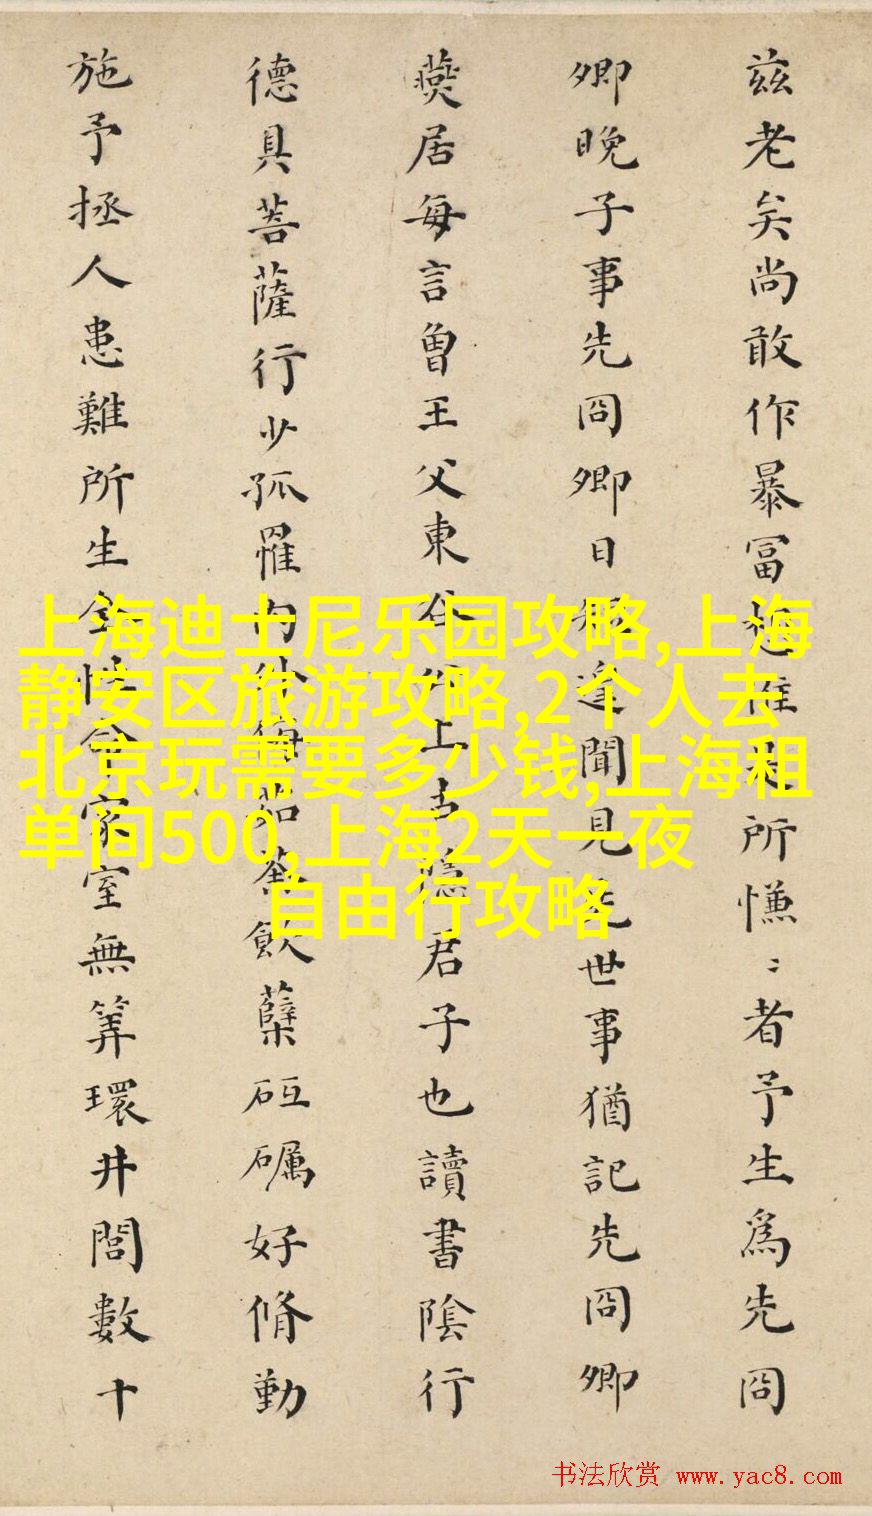 兹老矣尚敢作暴富是所慊〻者予生為先冏
卿晚子事先冏卿日逢聞見先世事猶記先冏卿
燕居每言曾王父東谷上古隱君子也讀書陰行
德具菩薩行少孤罹內外侮茹荼飲蘖砥礪好脩勤
施予拯人患難所生全性命家室無筭環井閭數十
上海迪士尼乐园攻略,上海
静安区旅游攻略,2个人去
北京玩需要多少钱,上海租
单间500,上海2天一夜
自由行攻略
书法欣赏 www.yac8.com